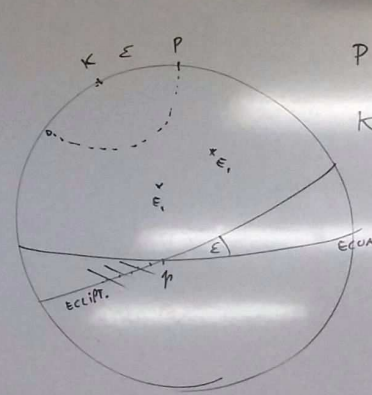 K ε P
P
K
E₁
E₁
ε
ECUA
p
ECLIPT.